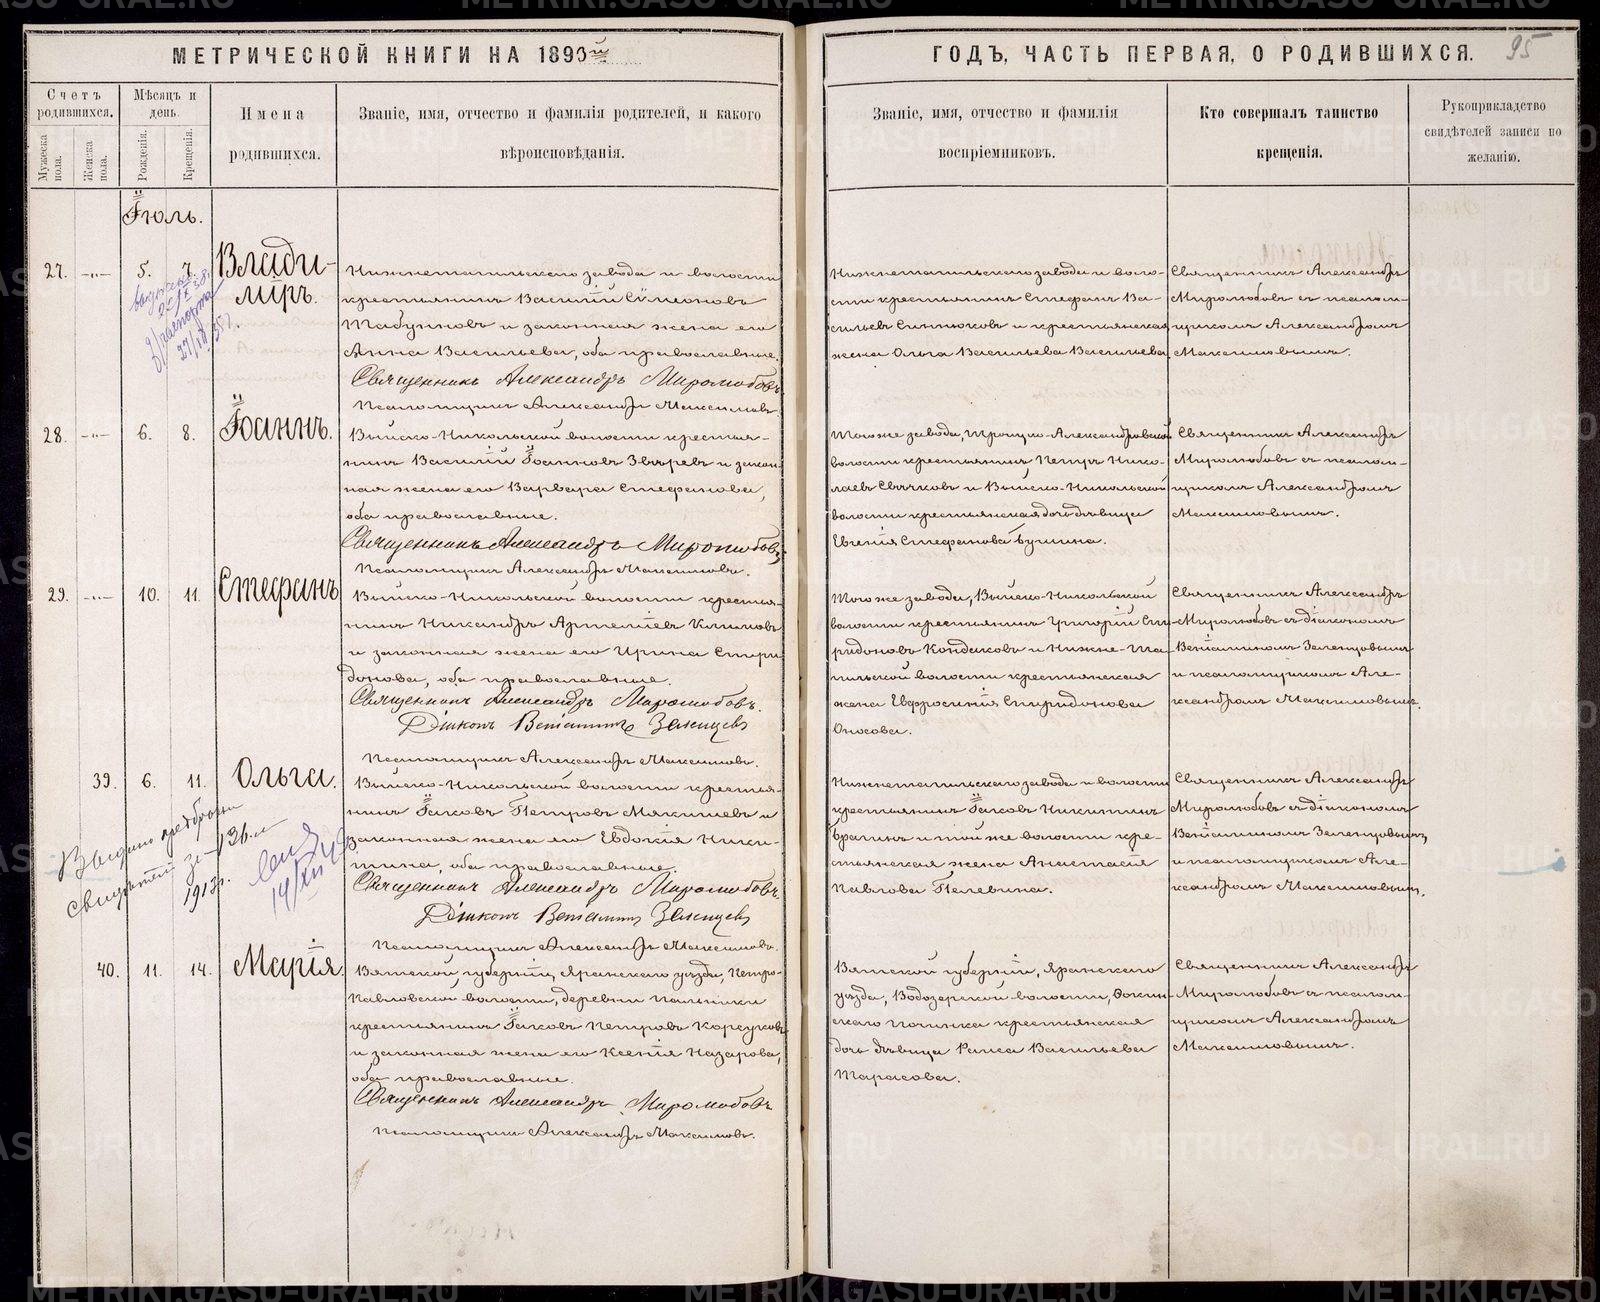 МЕТРИЧЕСКОЙ КНИГИ НА 1893й
ГОДЪ, ЧАСТЬ ПЕРВАЯ, О РОДИВШИХСЯ.
95
Счетъ родившихся.
Мѣсяцъ и день.
Имена родившихся.
Званіе, имя, отчество и фамилія родителей, и какого вѣроисповѣданія.
Званіе, имя, отчество и фамилія воспріемниковъ.
Кто совершалъ таинство крещенія.
Рукоприкладство свидѣтелей записи по желанію.
Мужеска пола.
Женска пола.
Рожденія.
Крещенія.
Іюль.
27. -"- 5. 7. Влади-
міръ.
Нижнетагильскаго завода и волости
крестьянинъ Василій Симеоновъ
Табунновъ и законная жена его
Анна Васильева, оба православные.
Священникъ Александръ Миролюбовъ.
Псаломщикъ Александръ Максимовъ.
Нижнетагильскаго завода и воло-
сти крестьянинъ Стефанъ Ва-
сильевъ и крестьянская
жена Ольга Васильева Васильева.
Священникъ Александръ
Миролюбовъ съ псалом-
щикомъ Александромъ
Максимовымъ.
28. -"- 6. 8. Іоаннъ.
Выйско-Никольской волости крестья-
нинъ Василій Іоанновъ Звѣревъ и закон-
ная жена его Варвара Стефанова,
оба православные.
Священникъ Александръ Миролюбовъ.
Псаломщикъ Александръ Максимовъ.
Того же завода, Троицко-Александровской
волости крестьянинъ Петръ Нико-
лаевъ Свѣчковъ и Выйско-Никольской
волости крестьянская дочь дѣвица
Евгенія Стефанова
Священникъ Александръ
Миролюбовъ съ псалом-
щикомъ Александромъ
Максимовымъ.
29. -"- 10. 11. Стефанъ
Выйско-Никольской волости крестья-
нинъ Никандръ Артеміевъ Климовъ
и законная жена его Ирина Спири-
донова, оба православные.
Священникъ Александръ Миролюбовъ.
Діаконъ Веніаминъ Зеленцовъ
Псаломщикъ Александръ Максимовъ.
Того же завода, Выйско-Никольской
волости крестьянинъ Григорій Спи-
ридоновъ Кондаковъ и Нижне-Та-
гильской волости крестьянская
жена Евфросинія Спиридонова
Оносова.
Священникъ Александръ
Миролюбовъ съ діакономъ
Веніаминомъ Зеленцовымъ
и псаломщикомъ Але-
ксандромъ Максимовымъ.
39. 6. 11. Ольга.
Выйско-Никольской волости крестья-
нинъ Іаковъ Петровъ Мякишевъ и
законная жена его Евдокія Ники-
тина, оба православные.
Священникъ Александръ Миролюбовъ.
Діаконъ Веніаминъ Зеленцовъ
Псаломщикъ Александръ Максимовъ.
Нижнетагильскаго завода и волости
крестьянинъ Іаковъ Никитинъ
и той же волости кре-
стьянская жена Анастасія
Павлова Пелевина.
Священникъ Александръ
Миролюбовъ съ діакономъ
Веніаминомъ Зеленцовымъ,
и псаломщикомъ Але-
ксандромъ Максимовымъ.
Выдано
за № 136
1913г.
40. 11. 14. Марія.
Вятской губерніи, Яранскаго уѣзда, Петро-
Павловской волости, деревни
крестьянинъ Іаковъ Петровъ
и законная жена его Ксенія Назарова,
оба православные.
Священникъ Александръ Миролюбовъ
Псаломщикъ Александръ Максимовъ.
Вятской губерніи, Яранскаго
уѣзда, Водозерской волости,
починка крестьянская
дочь дѣвица Раиса Васильева
Тарасова.
Священникъ Александръ
Миролюбовъ съ псалом-
щикомъ Александромъ
Максимовымъ.
METRIKI.GASO-URAL.RU